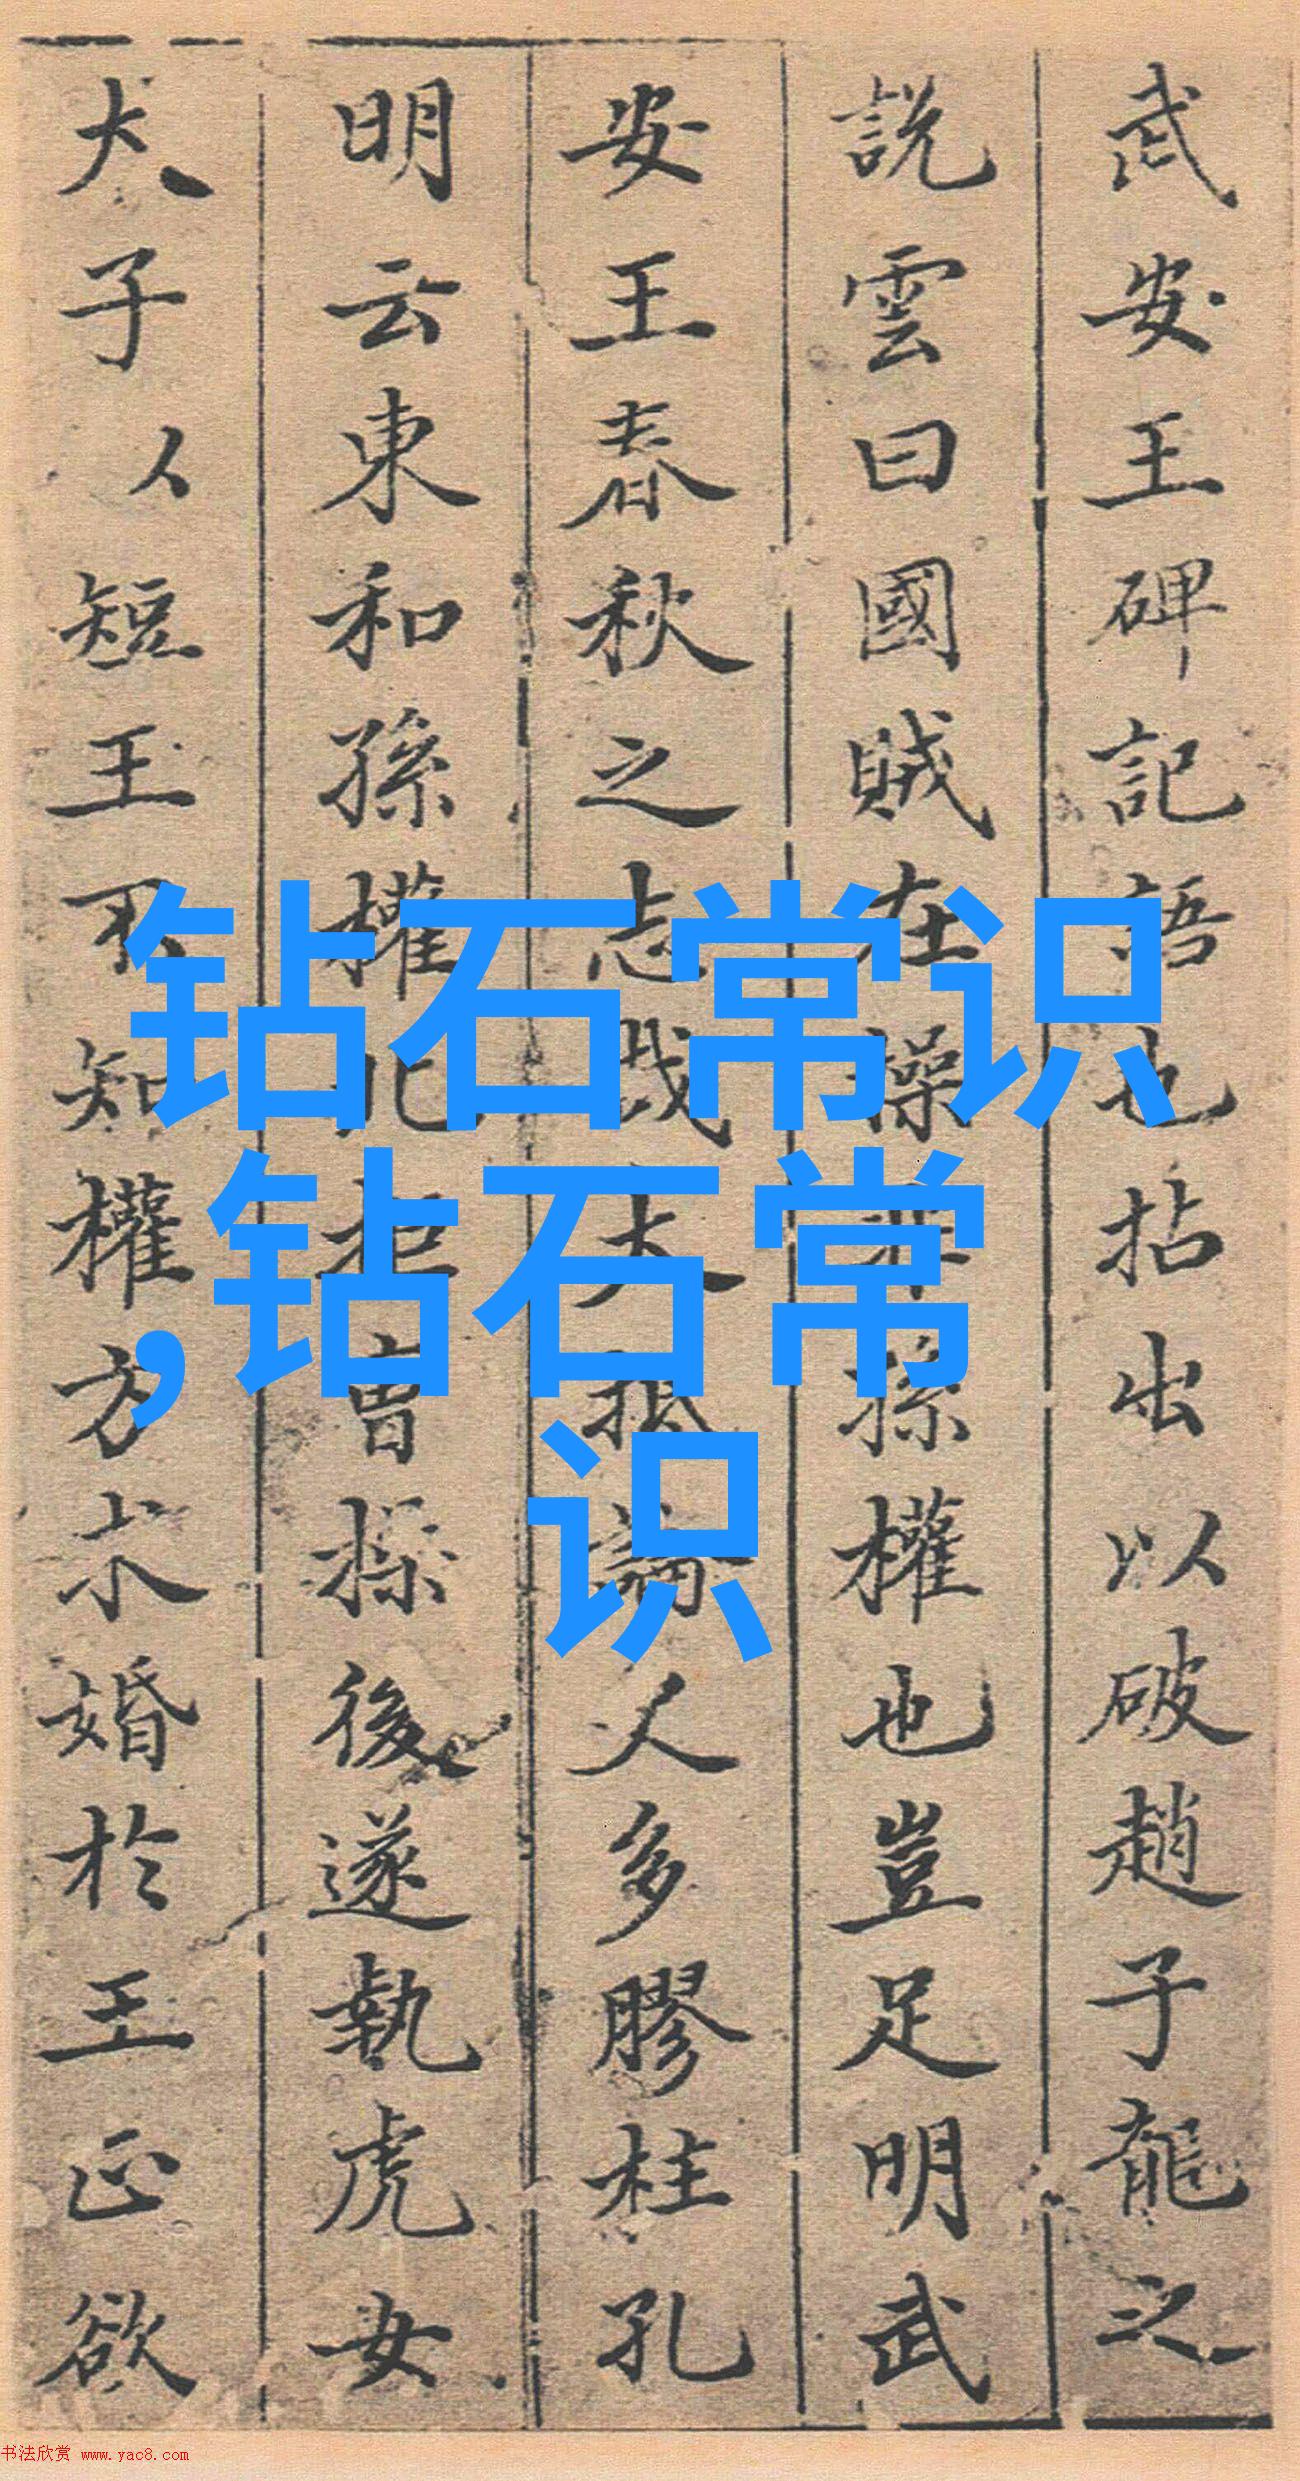 武安王碑記語也拈出以破趙子龍之
說雲曰國賊在操非孫權也豈足明武
安王春秋之志哉大抵論人多膠柱孔
明云東和孫權北拒曹操後遂執虎女
犬子以短王不知權方求婚於王正欲
钻石常识
,钻石常
识
书法欣赏 www.yac8.com